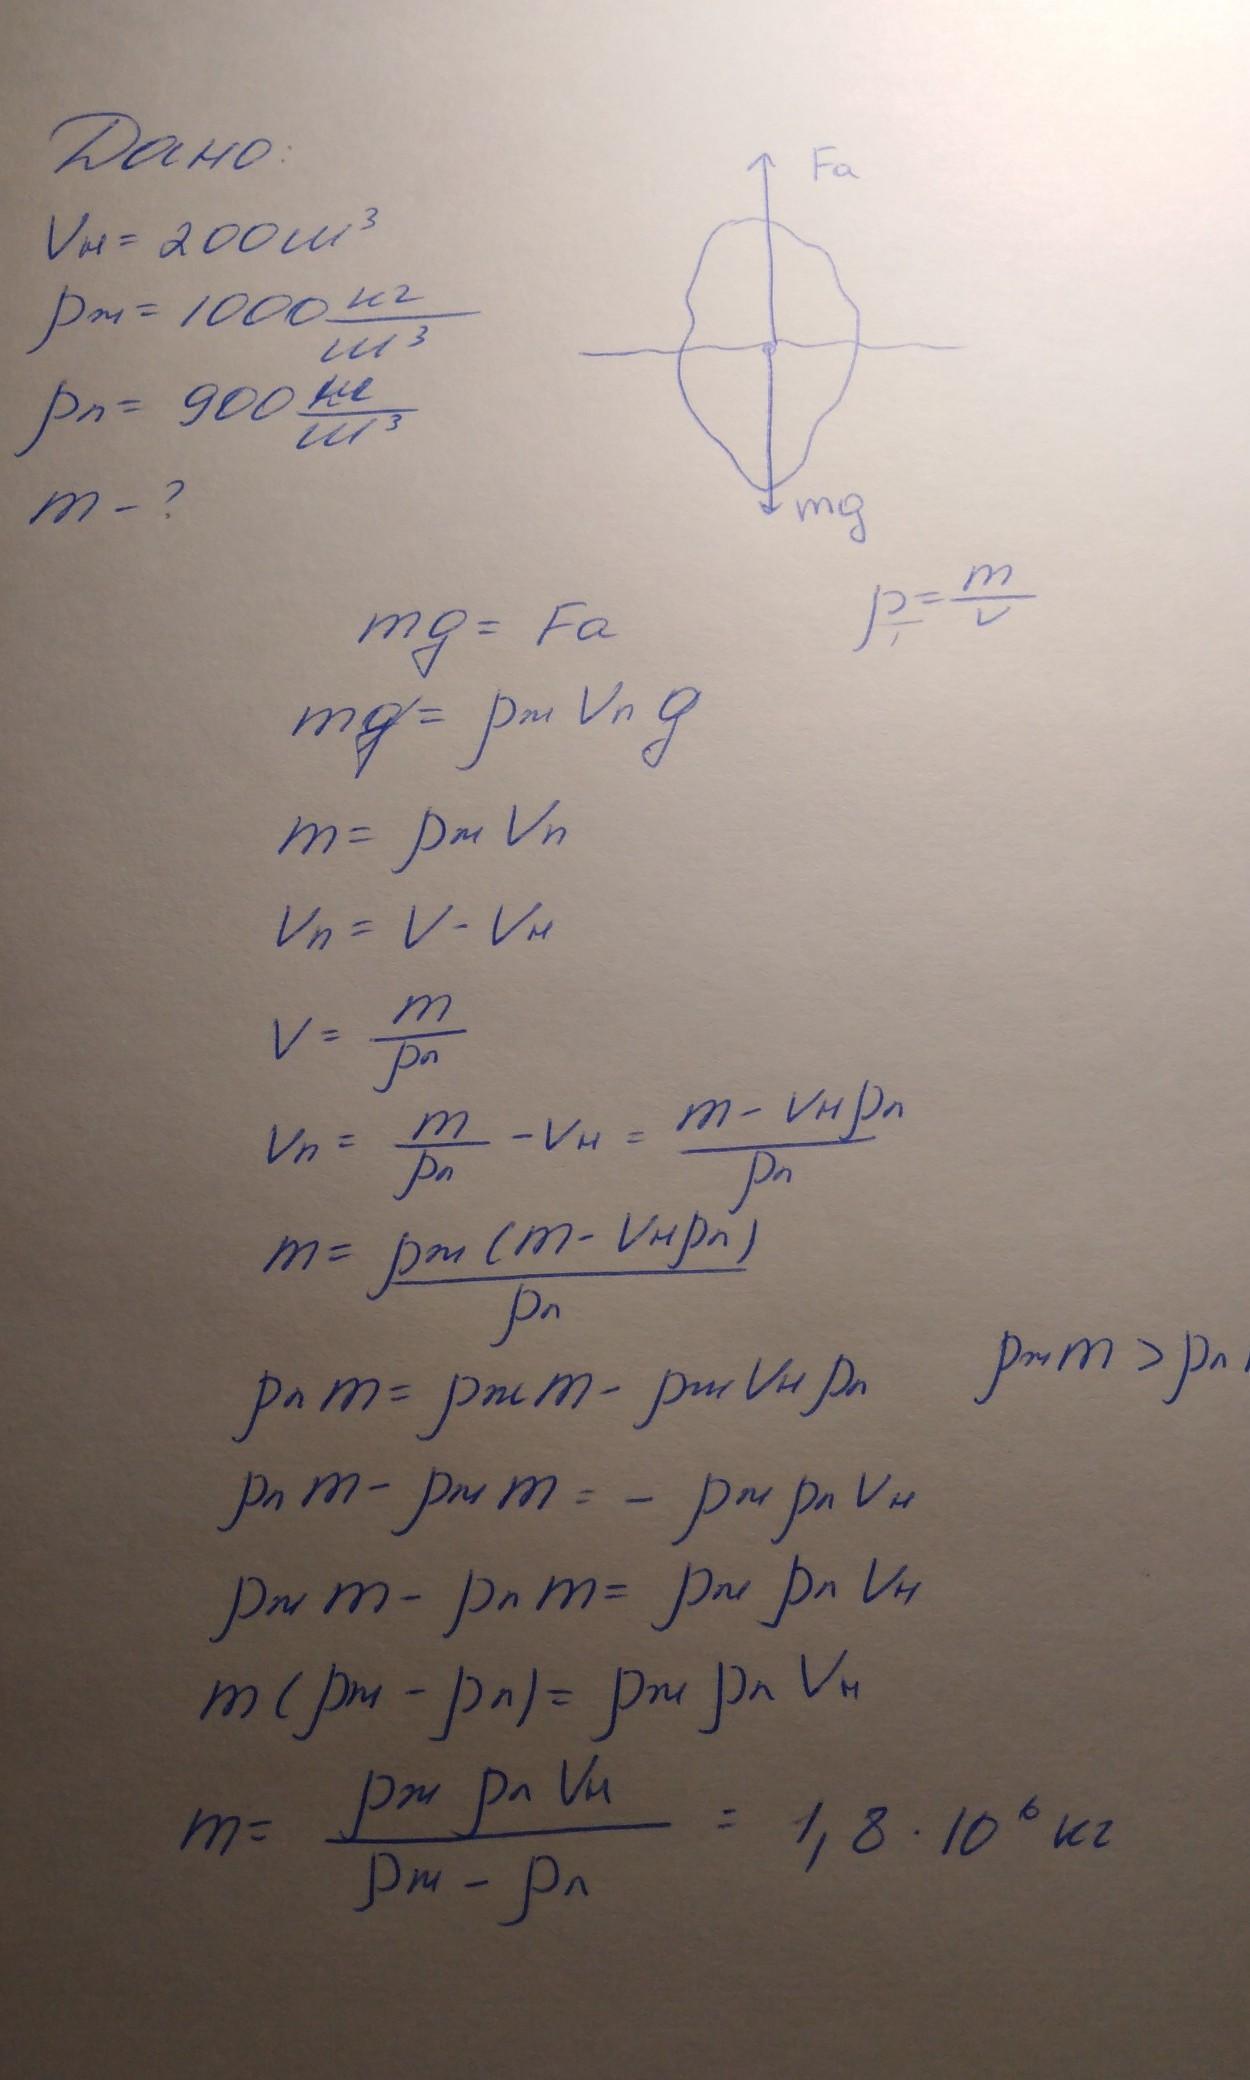 Дано:
Vн = 200 м³
ρж = 1000 кг/м³
ρл = 900 кг/м³
m - ?
Fa
mg
ρ = m/V
mg = Fa
mg = ρж Vп g
m = ρж Vп
Vп = V - Vн
V = m/ρл
Vп = m/ρл - Vн = (m - Vн ρл)/ρл
m = ρж (m - Vн ρл)/ρл
ρл m = ρж m - ρж Vн ρл
ρж m > ρл
ρл m - ρж m = - ρж ρл Vн
ρж m - ρл m = ρж ρл Vн
m (ρж - ρл) = ρж ρл Vн
m = ρж ρл Vн/(ρж - ρл) = 1,8 · 10⁶ кг